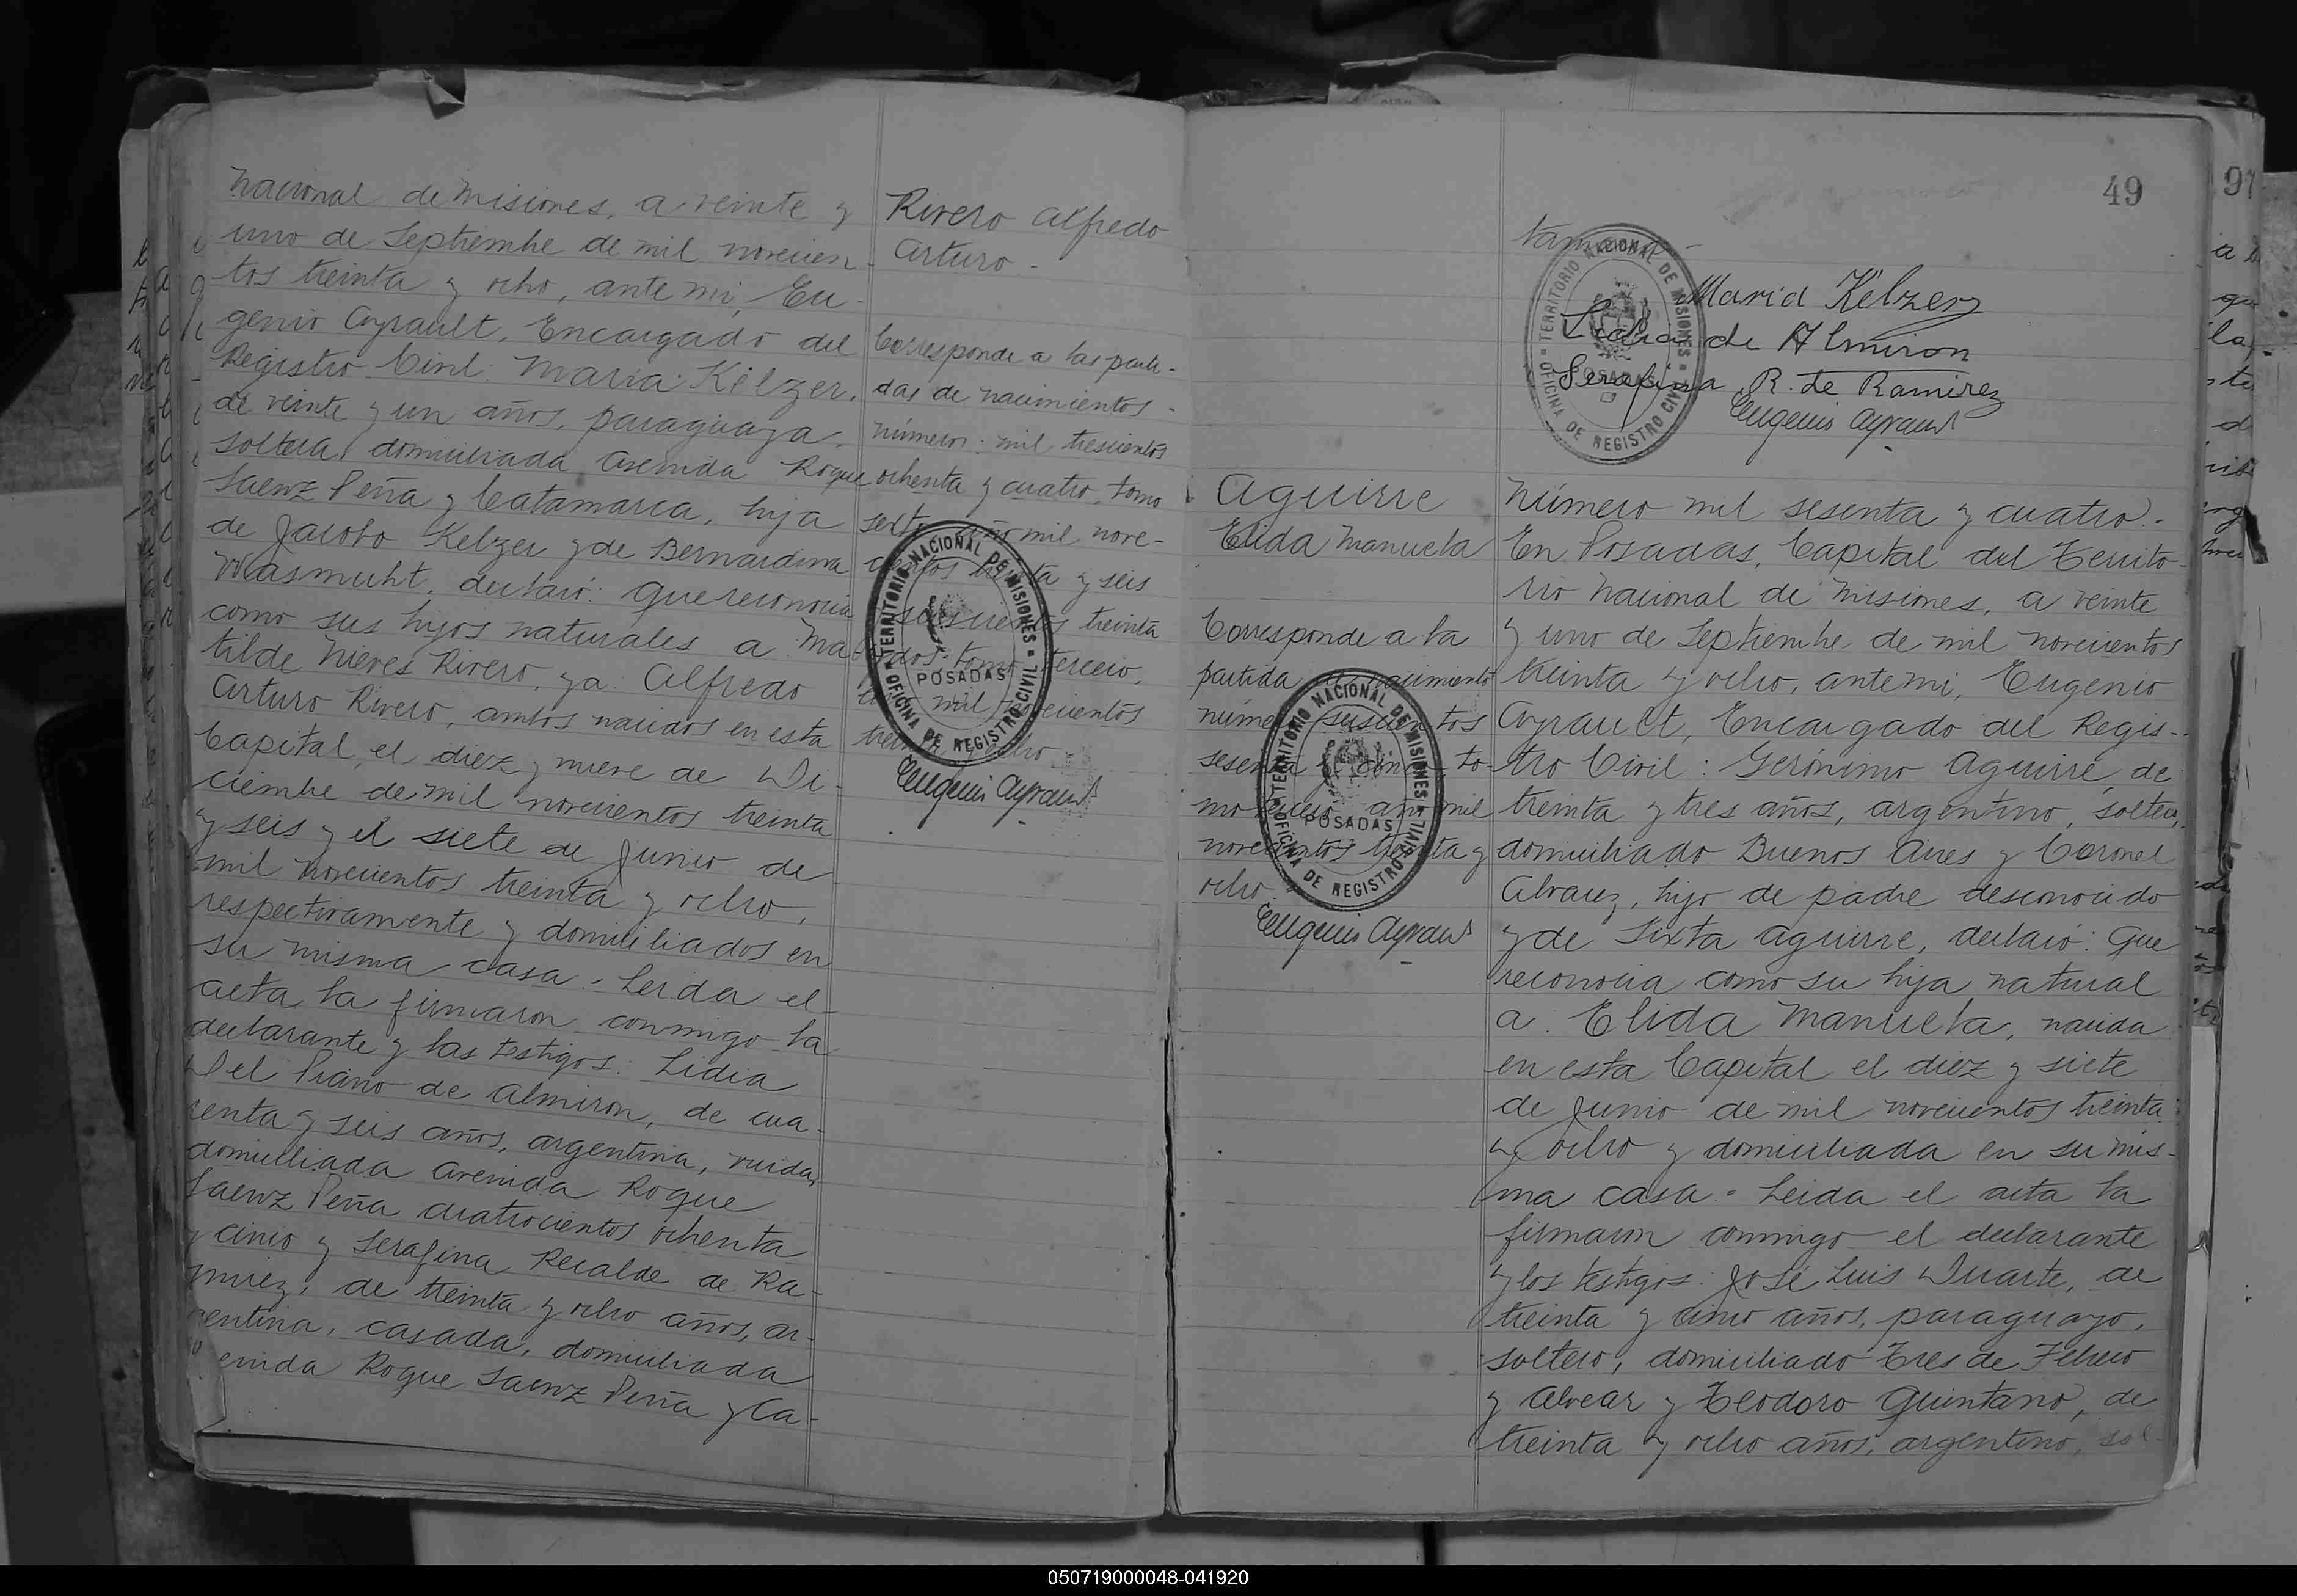 nacional de Misiones, a veinte y
uno de Septiembre de mil novecien-
tos treinta y ocho, ante mi, Eu-
genio Ayrault, Encargado del
Registro Civil: Maria Kelzer,
de veinte y un años, paraguaya,
soltera, domiciliada Avenida Roque
Saenz Peña y Catamarca, hija
de Jacobo Kelzer y de Bernardina
Wasmuht, declaró: Que reconocia
como sus hijos naturales a Ma-
tilde Nieves Rivero, y a Alfredo
Arturo Rivero, ambos nacidos en esta
Capital, el diez y nueve de Di-
ciembre de mil novecientos treinta
y seis y el siete de Junio de
mil novecientos treinta y ocho,
respectivamente y domiciliados en
su misma casa.- Leida el
acta la firmaron conmigo la
declarante y las testigos: Lidia
Del Piano de Almiron, de cua-
renta y seis años, argentina, viuda,
domiciliada Avenida Roque
Saenz Peña cuatrocientos ochenta
y cinco y Serafina Recalde de Ra-
mirez, de treinta y ocho años, ar-
gentina, casada, domiciliada
Avenida Roque Saenz Peña y Ca-
Rivero Alfredo
Arturo.-
Corresponde a las parti-
das de nacimientos
números: mil trescientos
ochenta y cuatro, tomo
sexto, año mil nove-
cientos treinta y seis
y seiscientos treinta
y dos: tomo tercero,
año mil novecientos
treinta y ocho.
Eugenio Ayrault
TERRITORIO NACIONAL DE MISIONES
POSADAS
OFICINA DE REGISTRO CIVIL
49
97
tamarca.-
Maria Kelzer
Lidia de Almiron
Serafina R. de Ramirez
Eugenio Ayrault
TERRITORIO NACIONAL DE MISIONES
POSADAS
OFICINA DE REGISTRO CIVIL
Aguirre
Elida Manuela
Corresponde a la
partida de nacimiento
número seiscientos
sesenta y cinco, to-
mo tercero, año mil
novecientos treinta y
ocho.
Eugenio Ayrault
TERRITORIO NACIONAL DE MISIONES
POSADAS
OFICINA DE REGISTRO CIVIL
Número mil sesenta y cuatro.-
En Posadas, Capital del Territo-
rio Nacional de Misiones, a veinte
y uno de Septiembre de mil novecientos
treinta y ocho, ante mi, Eugenio
Ayrault, Encargado del Regis-
tro Civil: Gerónimo Aguirre, de
treinta y tres años, argentino, soltero,
domiciliado Buenos Aires y Coronel
Alvarez, hijo de padre desconocido
y de Sixta Aguirre, declaró: Que
reconocia como su hija natural
a: Elida Manuela, nacida
en esta Capital el diez y siete
de Junio de mil novecientos treinta
y ocho y domiciliada en su mis-
ma casa.- Leida el acta la
firmaron conmigo el declarante
y los testigos: José Luis Duarte, de
treinta y cinco años, paraguayo,
soltero, domiciliado Tres de Febrero
y Alvear y Teodoro Quintano, de
treinta y ocho años, argentino, sol-
050719000048-041920